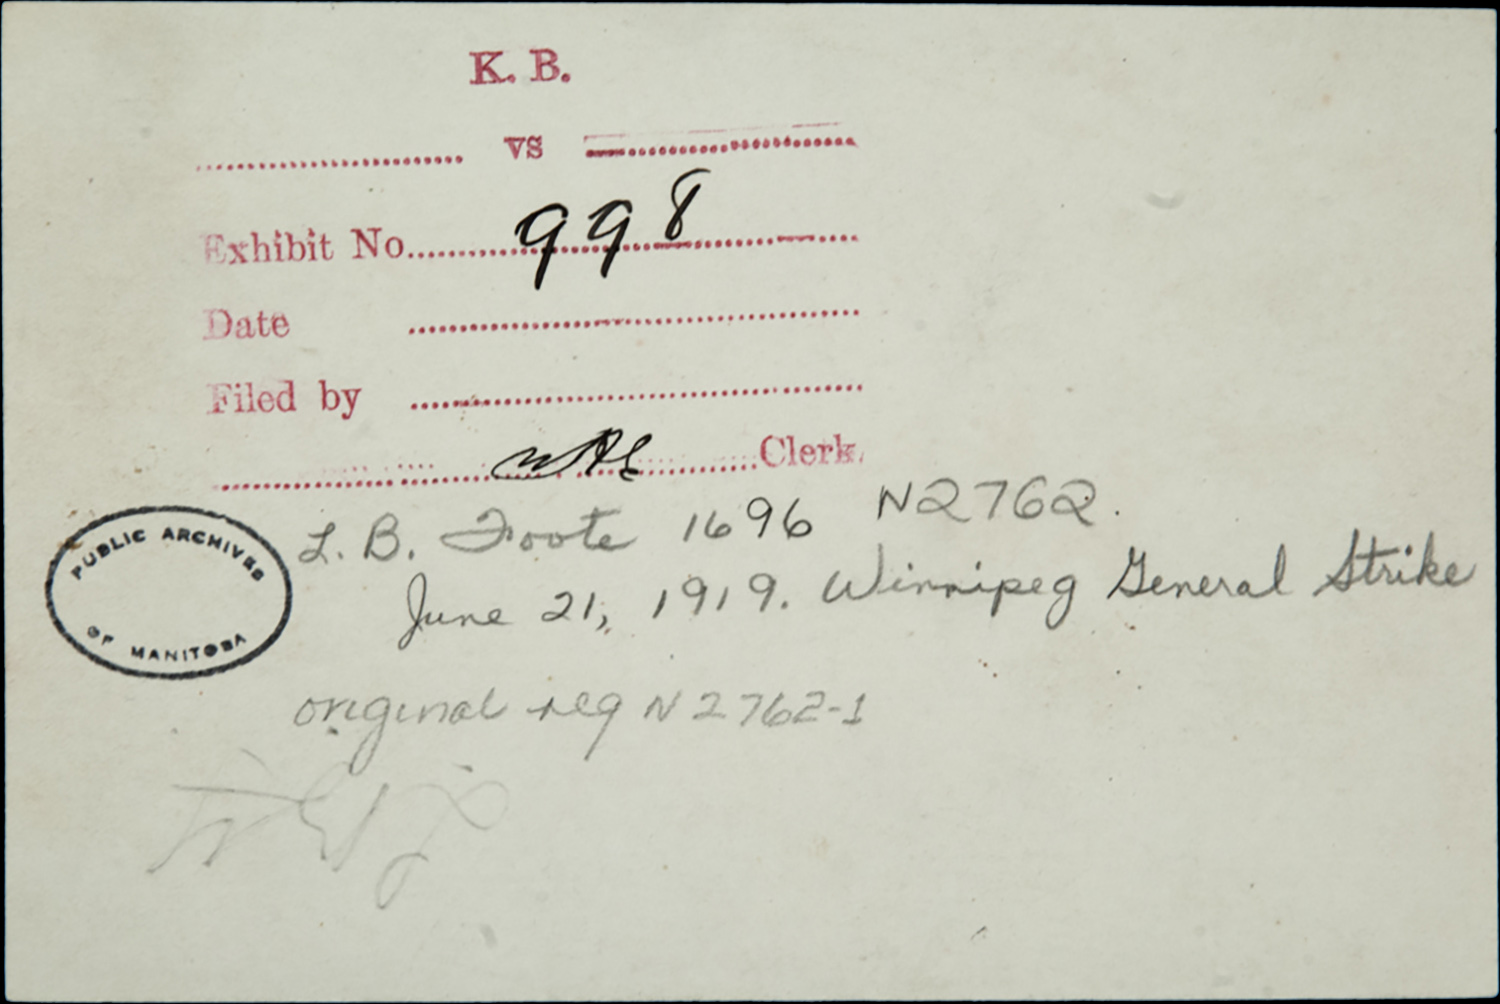 K. B.
vs
Exhibit No. 998
Date
Filed by
Clerk.
L. B. Foote 1696 N2762.
PUBLIC ARCHIVES
OF MANITOBA
June 21, 1919. Winnipeg General Strike
original neg N2762-1